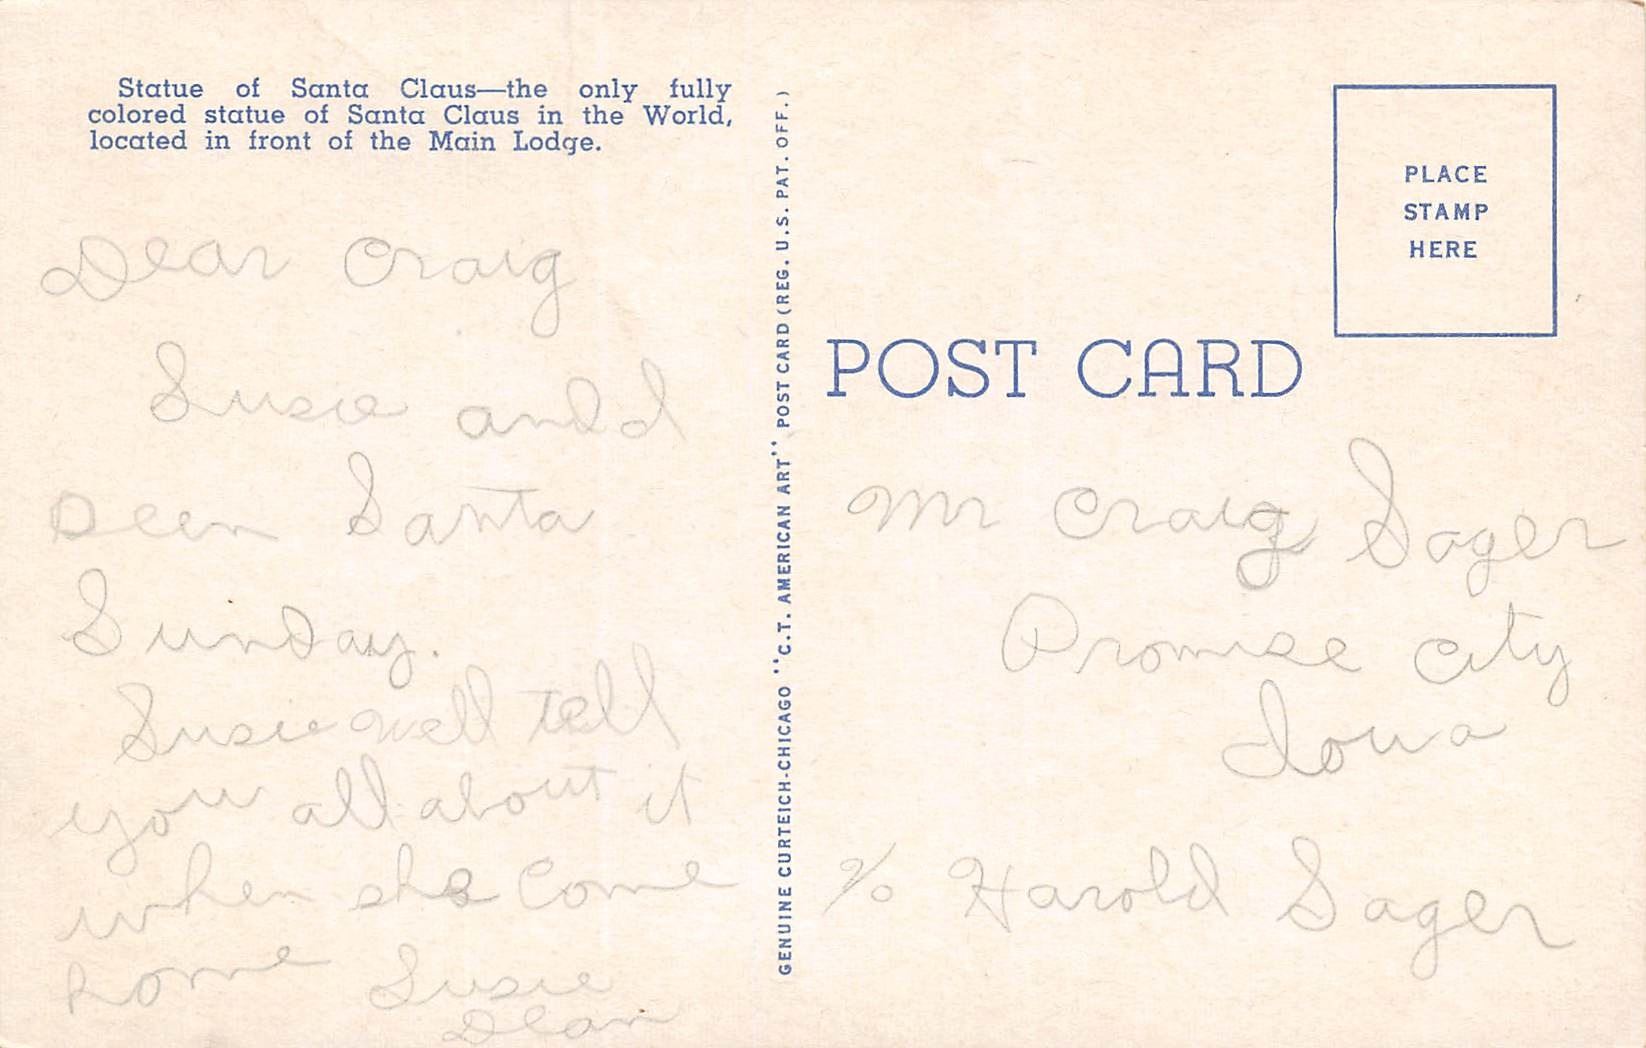 Statue of Santa Claus—the only fully
colored statue of Santa Claus in the World,
located in front of the Main Lodge.
Dear Craig
Susie and I
Seen Santa
Sunday.
Susie well tell
you all about it
when she come
home Susie
Dean
GENUINE CURTEICH-CHICAGO "C.T. AMERICAN ART" POST CARD (REG. U.S. PAT. OFF.)
PLACE
STAMP
HERE
POST CARD
Mr Craig Sager
Promise City
Iowa
c/o Harold Sager